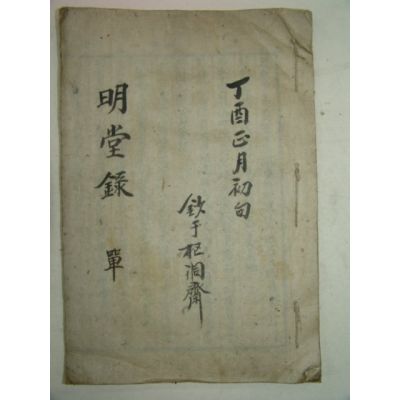 丁酉正月初旬
于杞洞齋
明堂錄 單